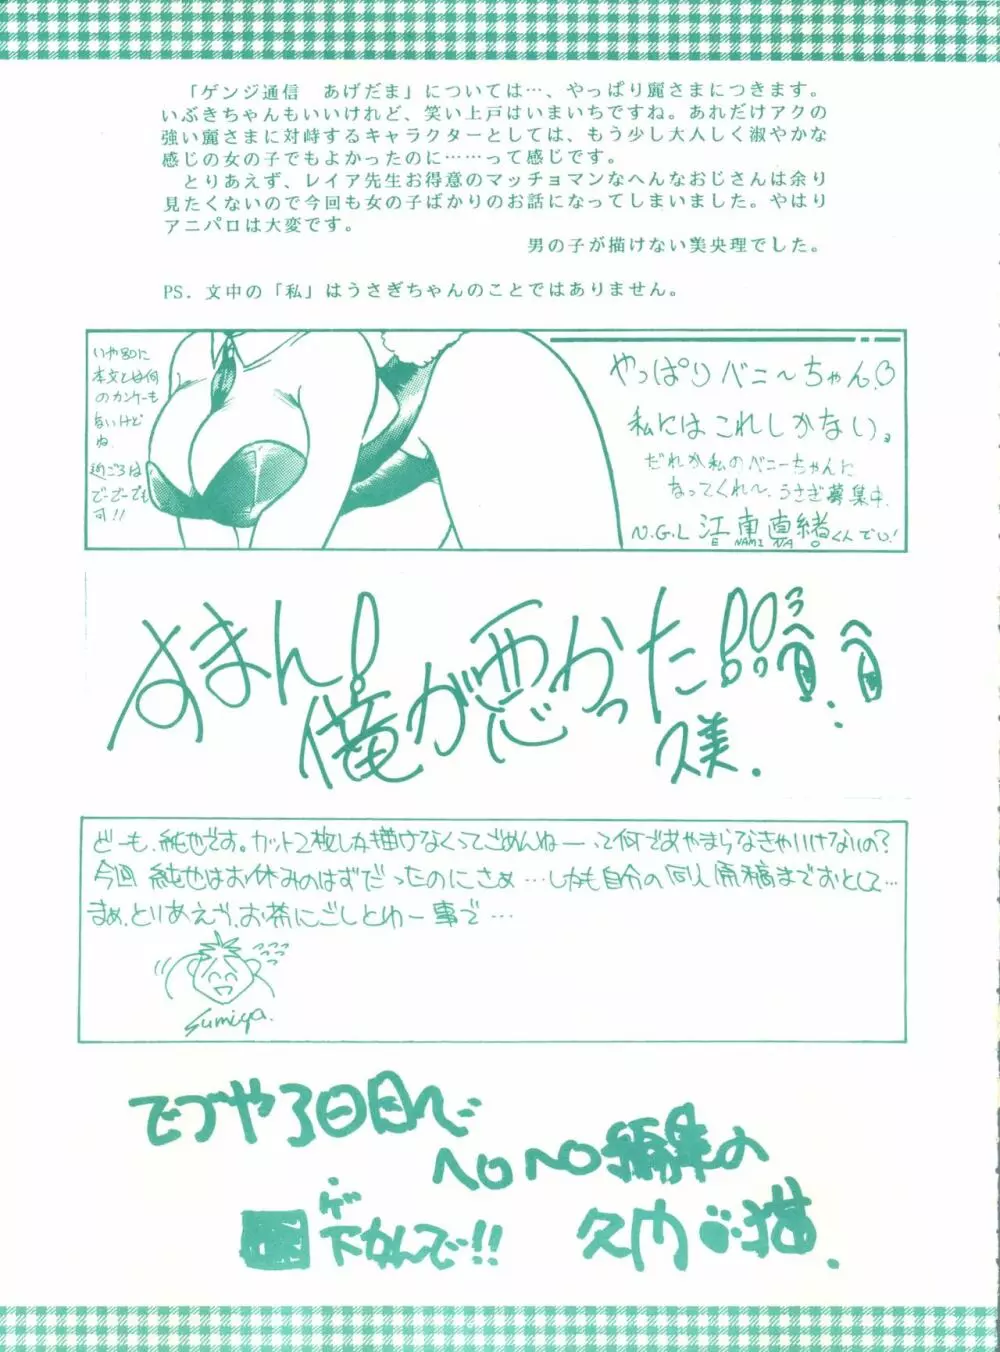 「ゲンジ通信　あげだま」については…、やっぱり麗さまにつきます。
いぶきちゃんもいいけれど、笑い上戸はいまいちですね。あれだけアクの
強い麗さまに対峙するキャラクターとしては、もう少し大人しく淑やかな
感じの女の子でもよかったのに……って感じです。
とりあえず、レイア先生お得意のマッチョマンなへんなおじさんは余り
見たくないので今回も女の子ばかりのお話になってしまいました。やはり
アニパロは大変です。
男の子が描けない美央理でした。
PS．文中の「私」はうさぎちゃんのことではありません。
いや別に
本文とは何
のカンケーも
ないけど
ね
近ごろは
でーでーでも
可!!
やっぱりバニ〜ちゃん♡
私にはこれしかない。
だれか私のバニーちゃんに
なってくれ〜。うさぎ募集中
N.G.L 江南直緒くんでい!
E NAMI NA O
すまん!
俺が悪かった!!
久美.
どーも、純也です。カット2枚しか描けなくってごめんねー…って何であやまらなきゃいけないの?
今回純也はお休みのはずだったのにさぁ…しかも自分の同人原稿までおとして…
まぁ、とりあえず、お茶にごしとゆー事で…
Sumiya.
でづや3日目で
ヘロヘロ編集の
下かんで!!
ゲ
猫.